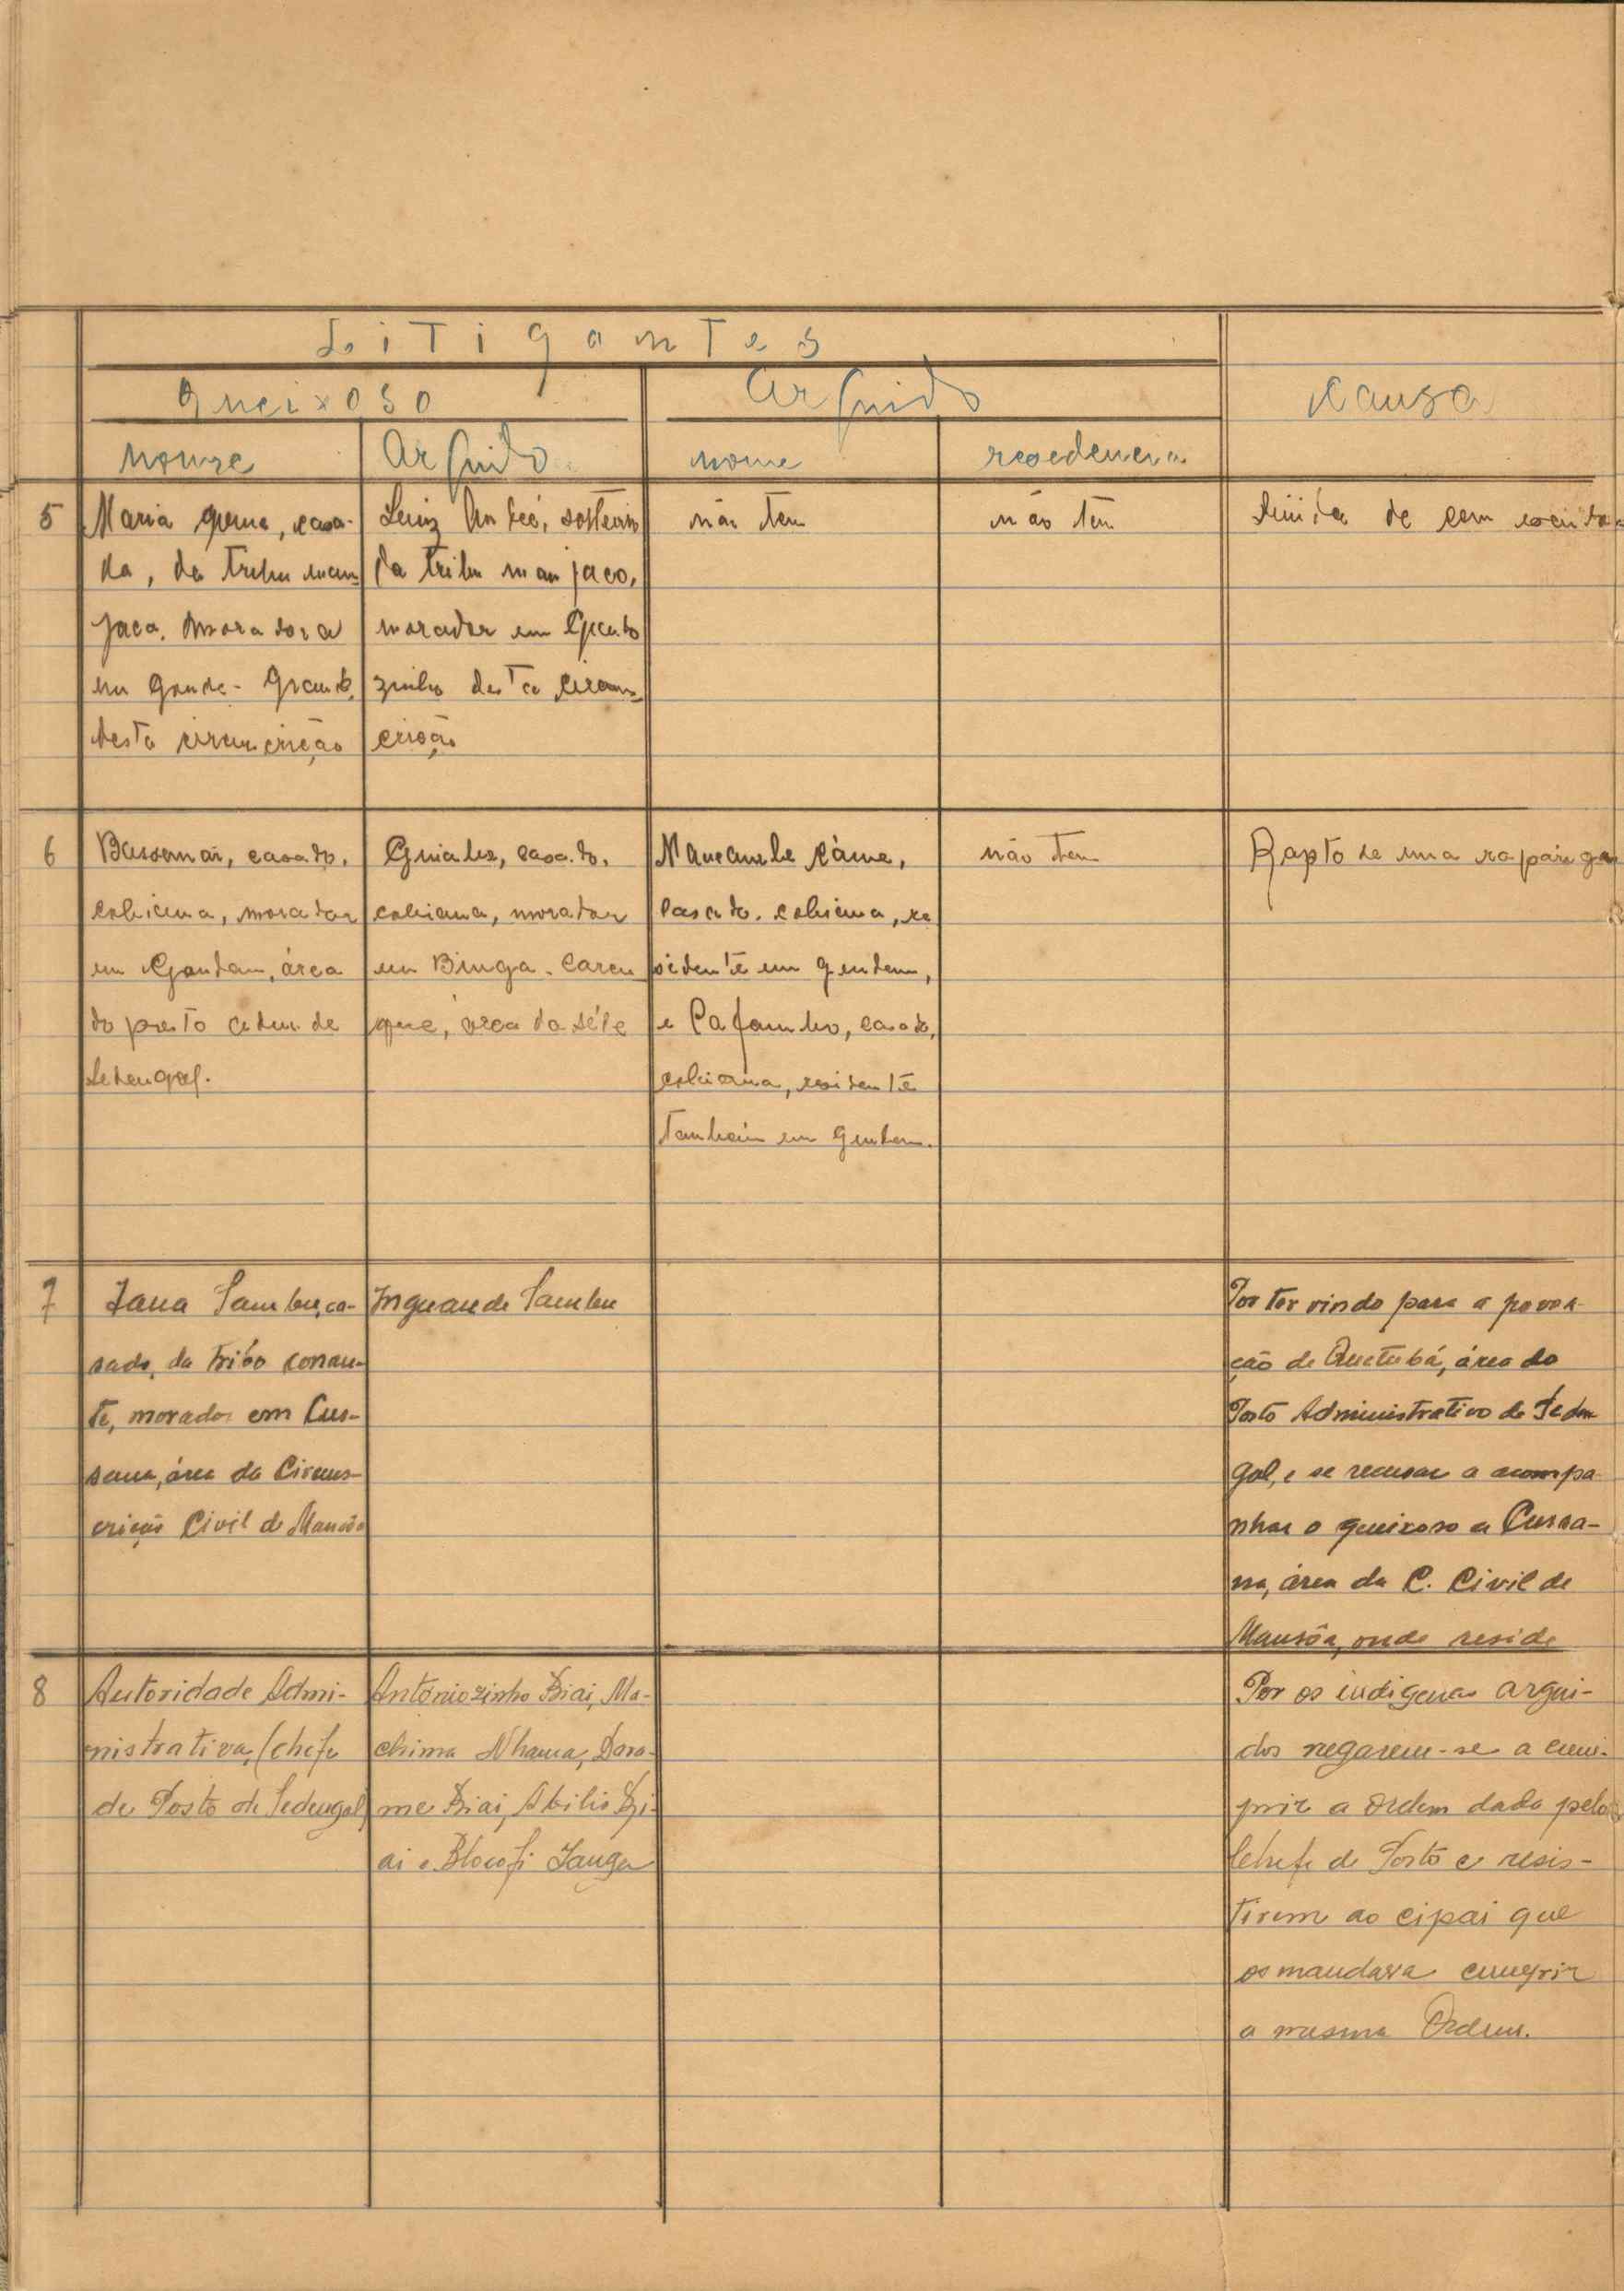 Litigantes
Queixoso
Arguido
Causa
nome
Arguido
nome
residencia
5
Maria
casa-
da, da tribu man-
jaca, moradora
em
desta circunscrição
Luiz André, solteiro
da tribu manjaco,
morador em
zinho desta circuns-
crição
não tem
não tem
de
6
casado,
cobiana, morador
em área
do posto de
Sedengal.
casado,
cobiana, morador
em Binga. Caren
que, área da séde
casado, cobiana, re
sidente em
e Cafambo, casado,
cobiana, residente
também em
não tem
Rapto de uma rapariga
7
Jana Sambu, ca-
sado, da tribo
te, morador em Cus-
sana, área da Circuns-
crição Civil de Mansôa
Inguande Sambu
Por ter vindo para a povoa-
ção de Quetubá, área do
Posto Administrativo de Seden
gal, e se recusar a acompa-
nhar o queixoso a Cussa-
na, área da C. Civil de
Mansôa, onde reside
8
Autoridade Admi-
nistrativa, (chefe
de Posto de Sedengal)
Antóniozinho Diai, Ma-
chima Nhama, Dara-
me Diai, Abilio Di-
ai e Blocofi Janga
Por os indigenas argui-
dos negarem-se a cum-
prir a ordem dada pelo
Chefe de Posto e resis-
tirem ao cipai que
os mandava cumprir
a mesma Ordem.